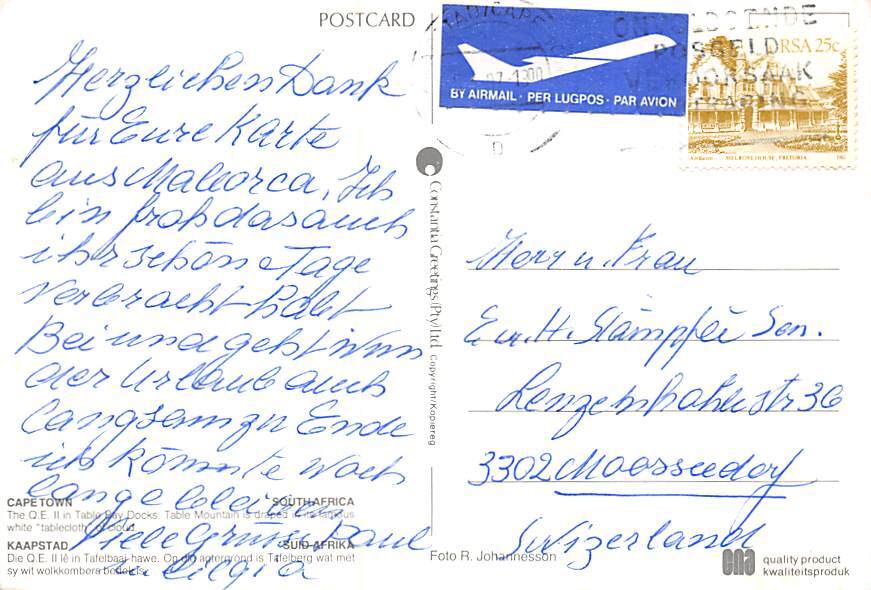 POSTCARD
Herzlichen Dank
für Eure Karte
aus Mallorca, Ich
bin froh das auch
ihr schöne Tage
verbracht habt
Bei uns geht nun
der Urlaub auch
langsam zu Ende
ich könnte noch
lange bleiben
Viele Grüsse Paul
CAPE TOWN SOUTH AFRICA
The Q.E. II in Table Bay Docks. Table Mountain is draped in its famous
white "tablecloth" of cloud.
KAAPSTAD SUID-AFRIKA
Die Q.E. II lê in Tafelbaai-hawe. Op die agtergrond is Tafelberg wat met
sy wit wolkkombers bedek is.
Constantia Greetings (Pty) Ltd. Copyright/Kopiereg
Foto R. Johannesson
BY AIRMAIL · PER LUGPOS · PAR AVION
POSGELD
RSA 25c
MELROSE HOUSE, PRETORIA
Herr u. Frau
E. u. H. Stämpfli Sen.
36
3302 Moosseedorf
Swizerland
quality product
kwaliteitsproduk